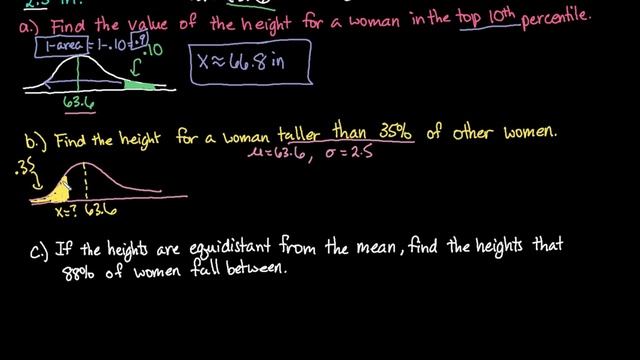 2.5 in.
a.) Find the value of the height for a woman in the top 10th percentile.
1-area = 1-.10 = .9
.10
x ≈ 66.8 in
63.6
b.) Find the height for a woman taller than 35% of other women.
μ=63.6, σ=2.5
.35
x=? 63.6
c.) If the heights are equidistant from the mean, find the heights that
88% of women fall between.